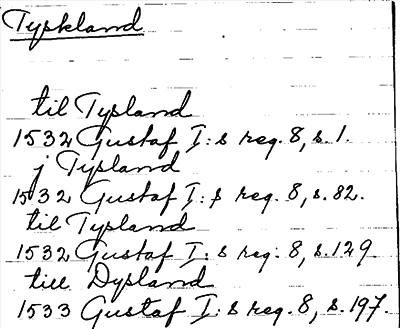 Tyskland
til Tysland
1532 Gustaf I:s reg. 8, s. 1.
j Tysland
1532 Gustaf I:s reg. 8, s. 82.
til Tysland
1532 Gustaf I:s reg. 8, s. 129.
till Dysland
1533 Gustaf I:s reg. 8, s. 197.